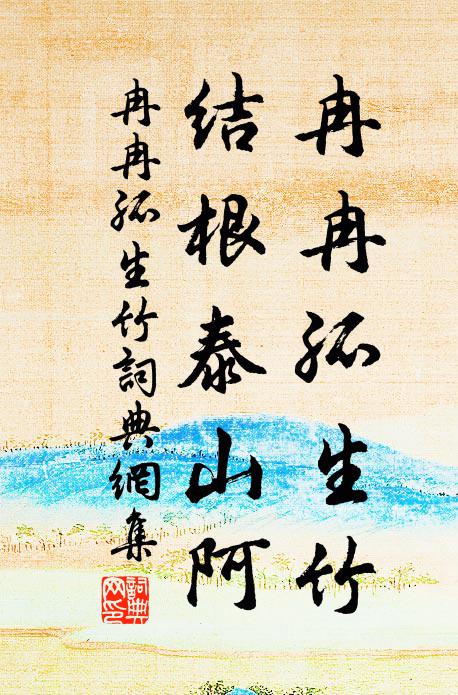 冉冉孤生竹
结根泰山阿
冉冉孤生竹詞典網集
詞典
网印